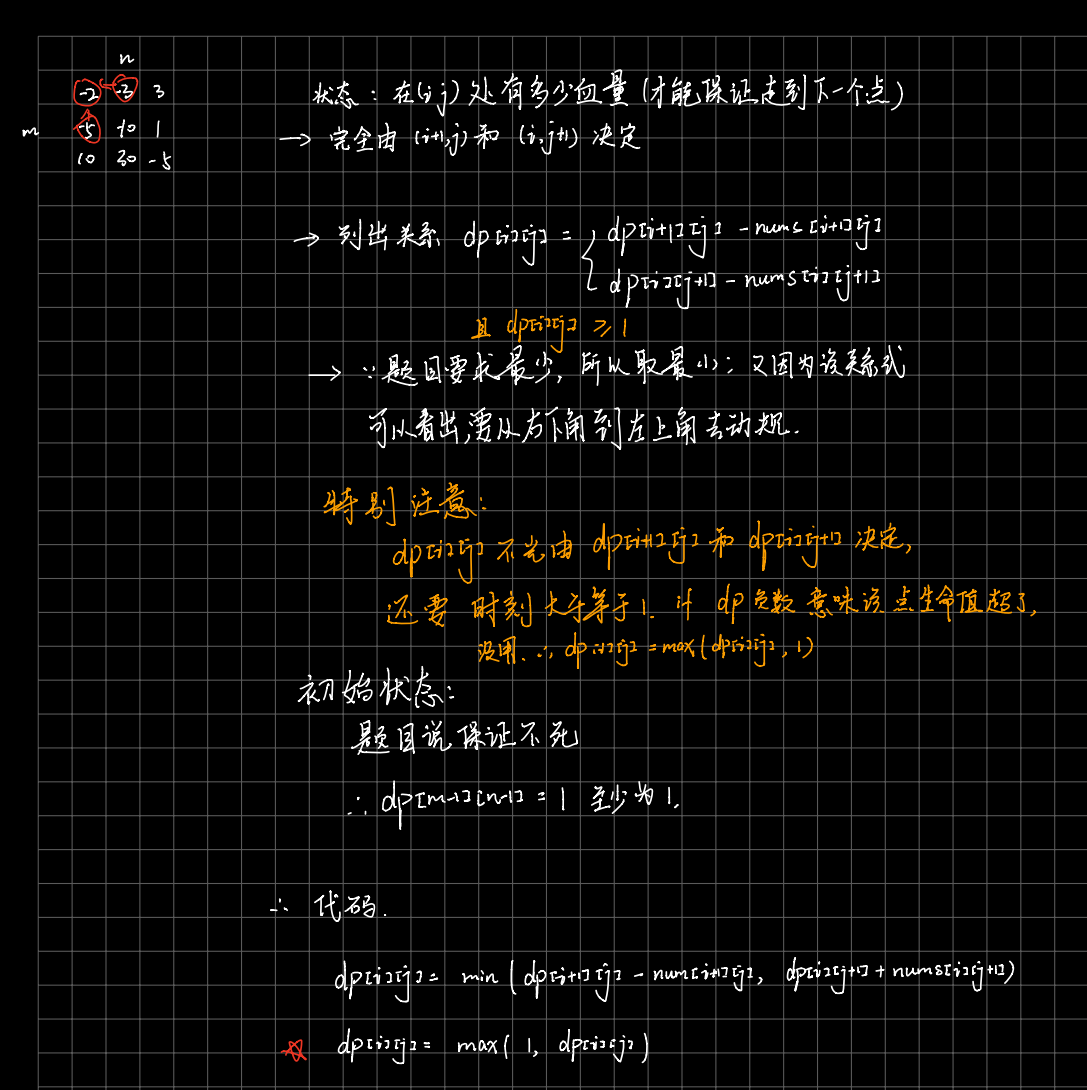 n
-2 -3 3
m -5 -10 1
10 30 -5
状态：在(i,j)处有多少血量(才能保证走到下一个点)
→ 完全由 (i+1,j)和 (i,j+1) 决定
→ 列出关系 dp[i][j] = { dp[i+1][j] - nums[i+1][j]
dp[i][j+1] - nums[i][j+1]
且 dp[i][j] ≥ 1
→ ∵题目要求最少，所以取最小；又因为该关系式
可以看出，要从右下角到左上角去动规.
特别注意：
dp[i][j] 不光由 dp[i+1][j] 和 dp[i][j+1] 决定，
还要 时刻大于等于1. if dp负数 意味该点生命值超了，
没用. ∴ dp[i][j] = max(dp[i][j], 1)
初始状态：
题目说保证不死
∴ dp[m-1][n-1] = 1 至少为1.
∴ 代码.
dp[i][j] = min ( dp[i+1][j] - num[i+1][j], dp[i][j+1] + nums[i][j+1])
dp[i][j] = max( 1, dp[i][j] )